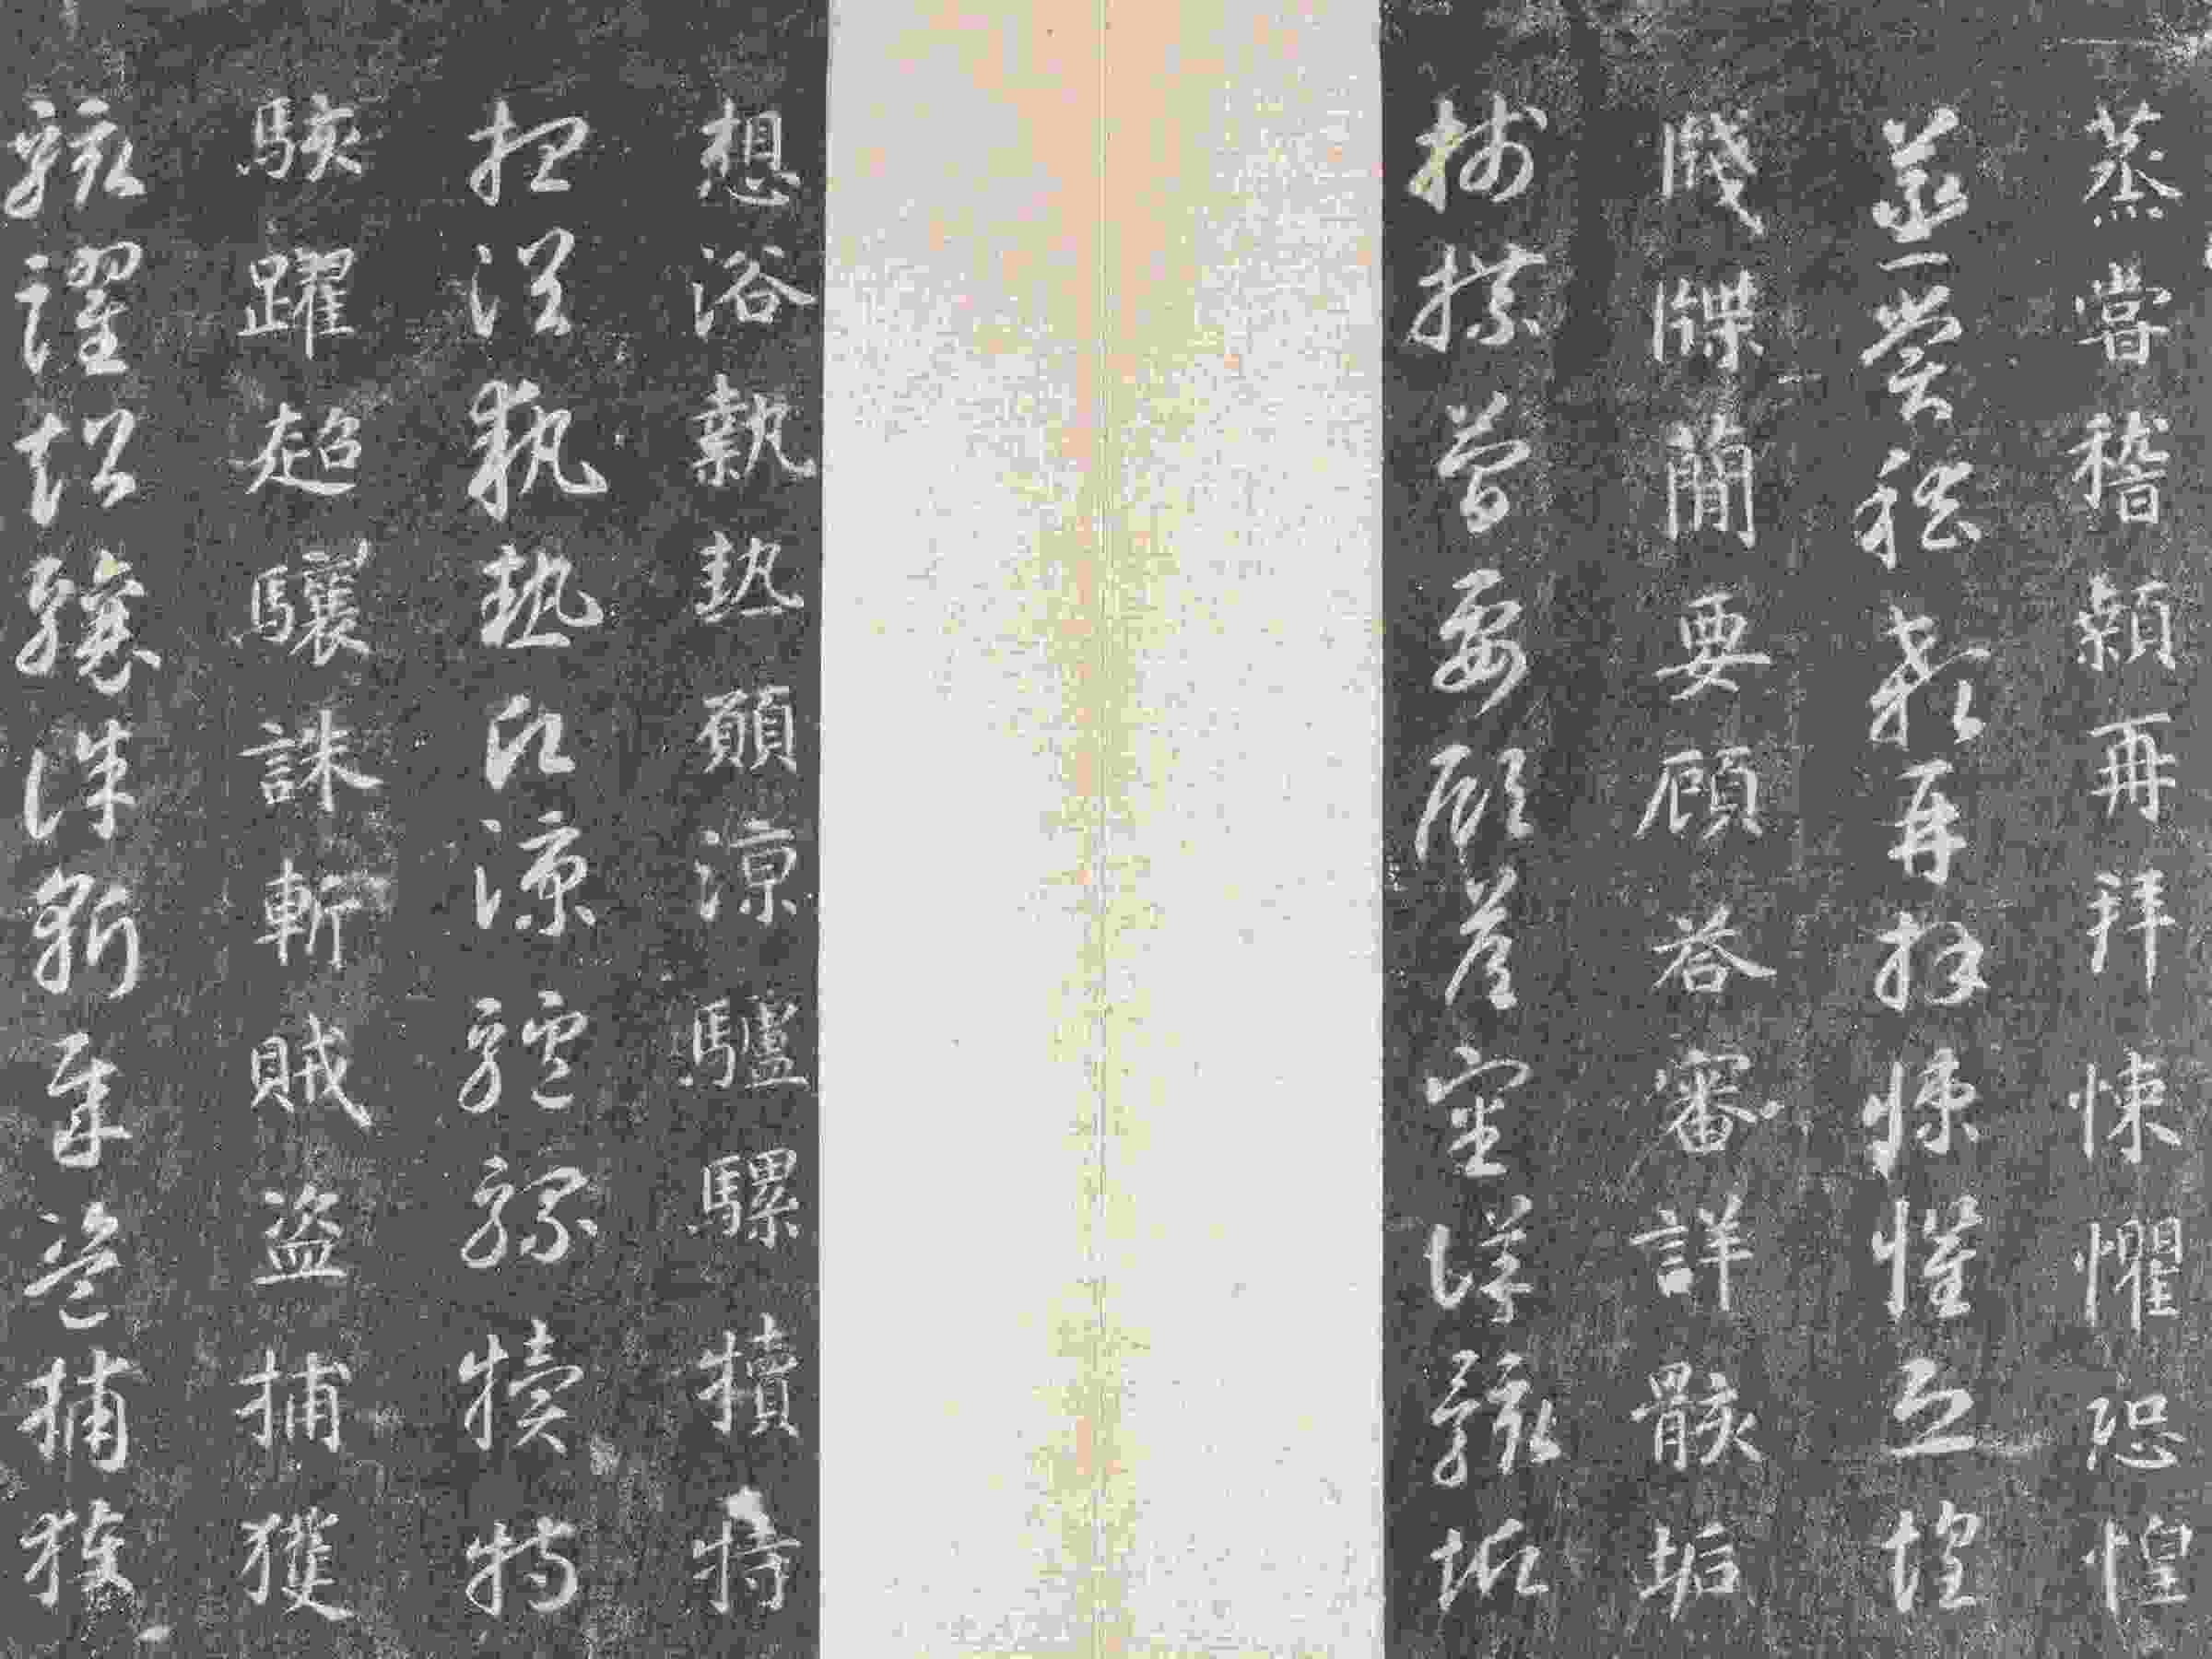 蒸嘗稽顙再拜悚懼恐惶
蒸嘗稽顙再拜悚懼恐惶
牋牒簡要顧答審詳骸垢
牋牒簡要顧答審詳骸垢
想浴執熱願涼驢騾犢特
想浴執熱願涼驢騾犢特
駭躍超驤誅斬賊盜捕獲
駭躍超驤誅斬賊盜捕獲